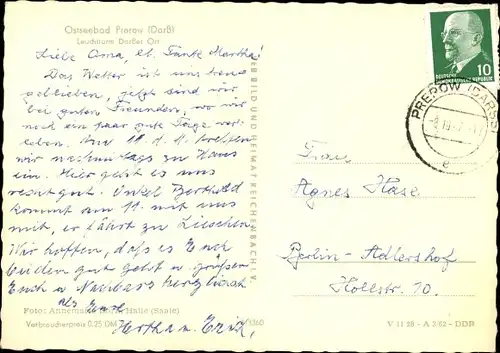 Ostseebad Prerow (Darß)
Leuchtturm Darßer Ort
Liebe Oma, lb. Tante Martha!
Das Wetter ist uns treu
geblieben, jetzt sind wir
bei guten Freunden, wo wir
noch ein paar gute Tage ver-
leben. Am 11.9. treffen
wir nachmittags zu Haus
ein. Hier geht es uns
recht gut. Onkel Berthold
kommt am 11. mit uns
mit, er fährt zu Lieschen.
Wir hoffen, daß es Euch
beiden gut geht u. grüßen
Euch u. Nachbars herzlich
als Eure
Hertha u. Erich
Foto: Halle (Saale)
Verbraucherpreis 0,25 DM
BILD UND HEIMAT REICHENBACH I. V.
DEUTSCHE
DEMOKRATISCHE REPUBLIK
10
PREROW (DARSS)
e
Frau
Agnes Hase
Berlin-Adlershof
Holzstr. 10.
V 11 28 - A 3/62 - DDR